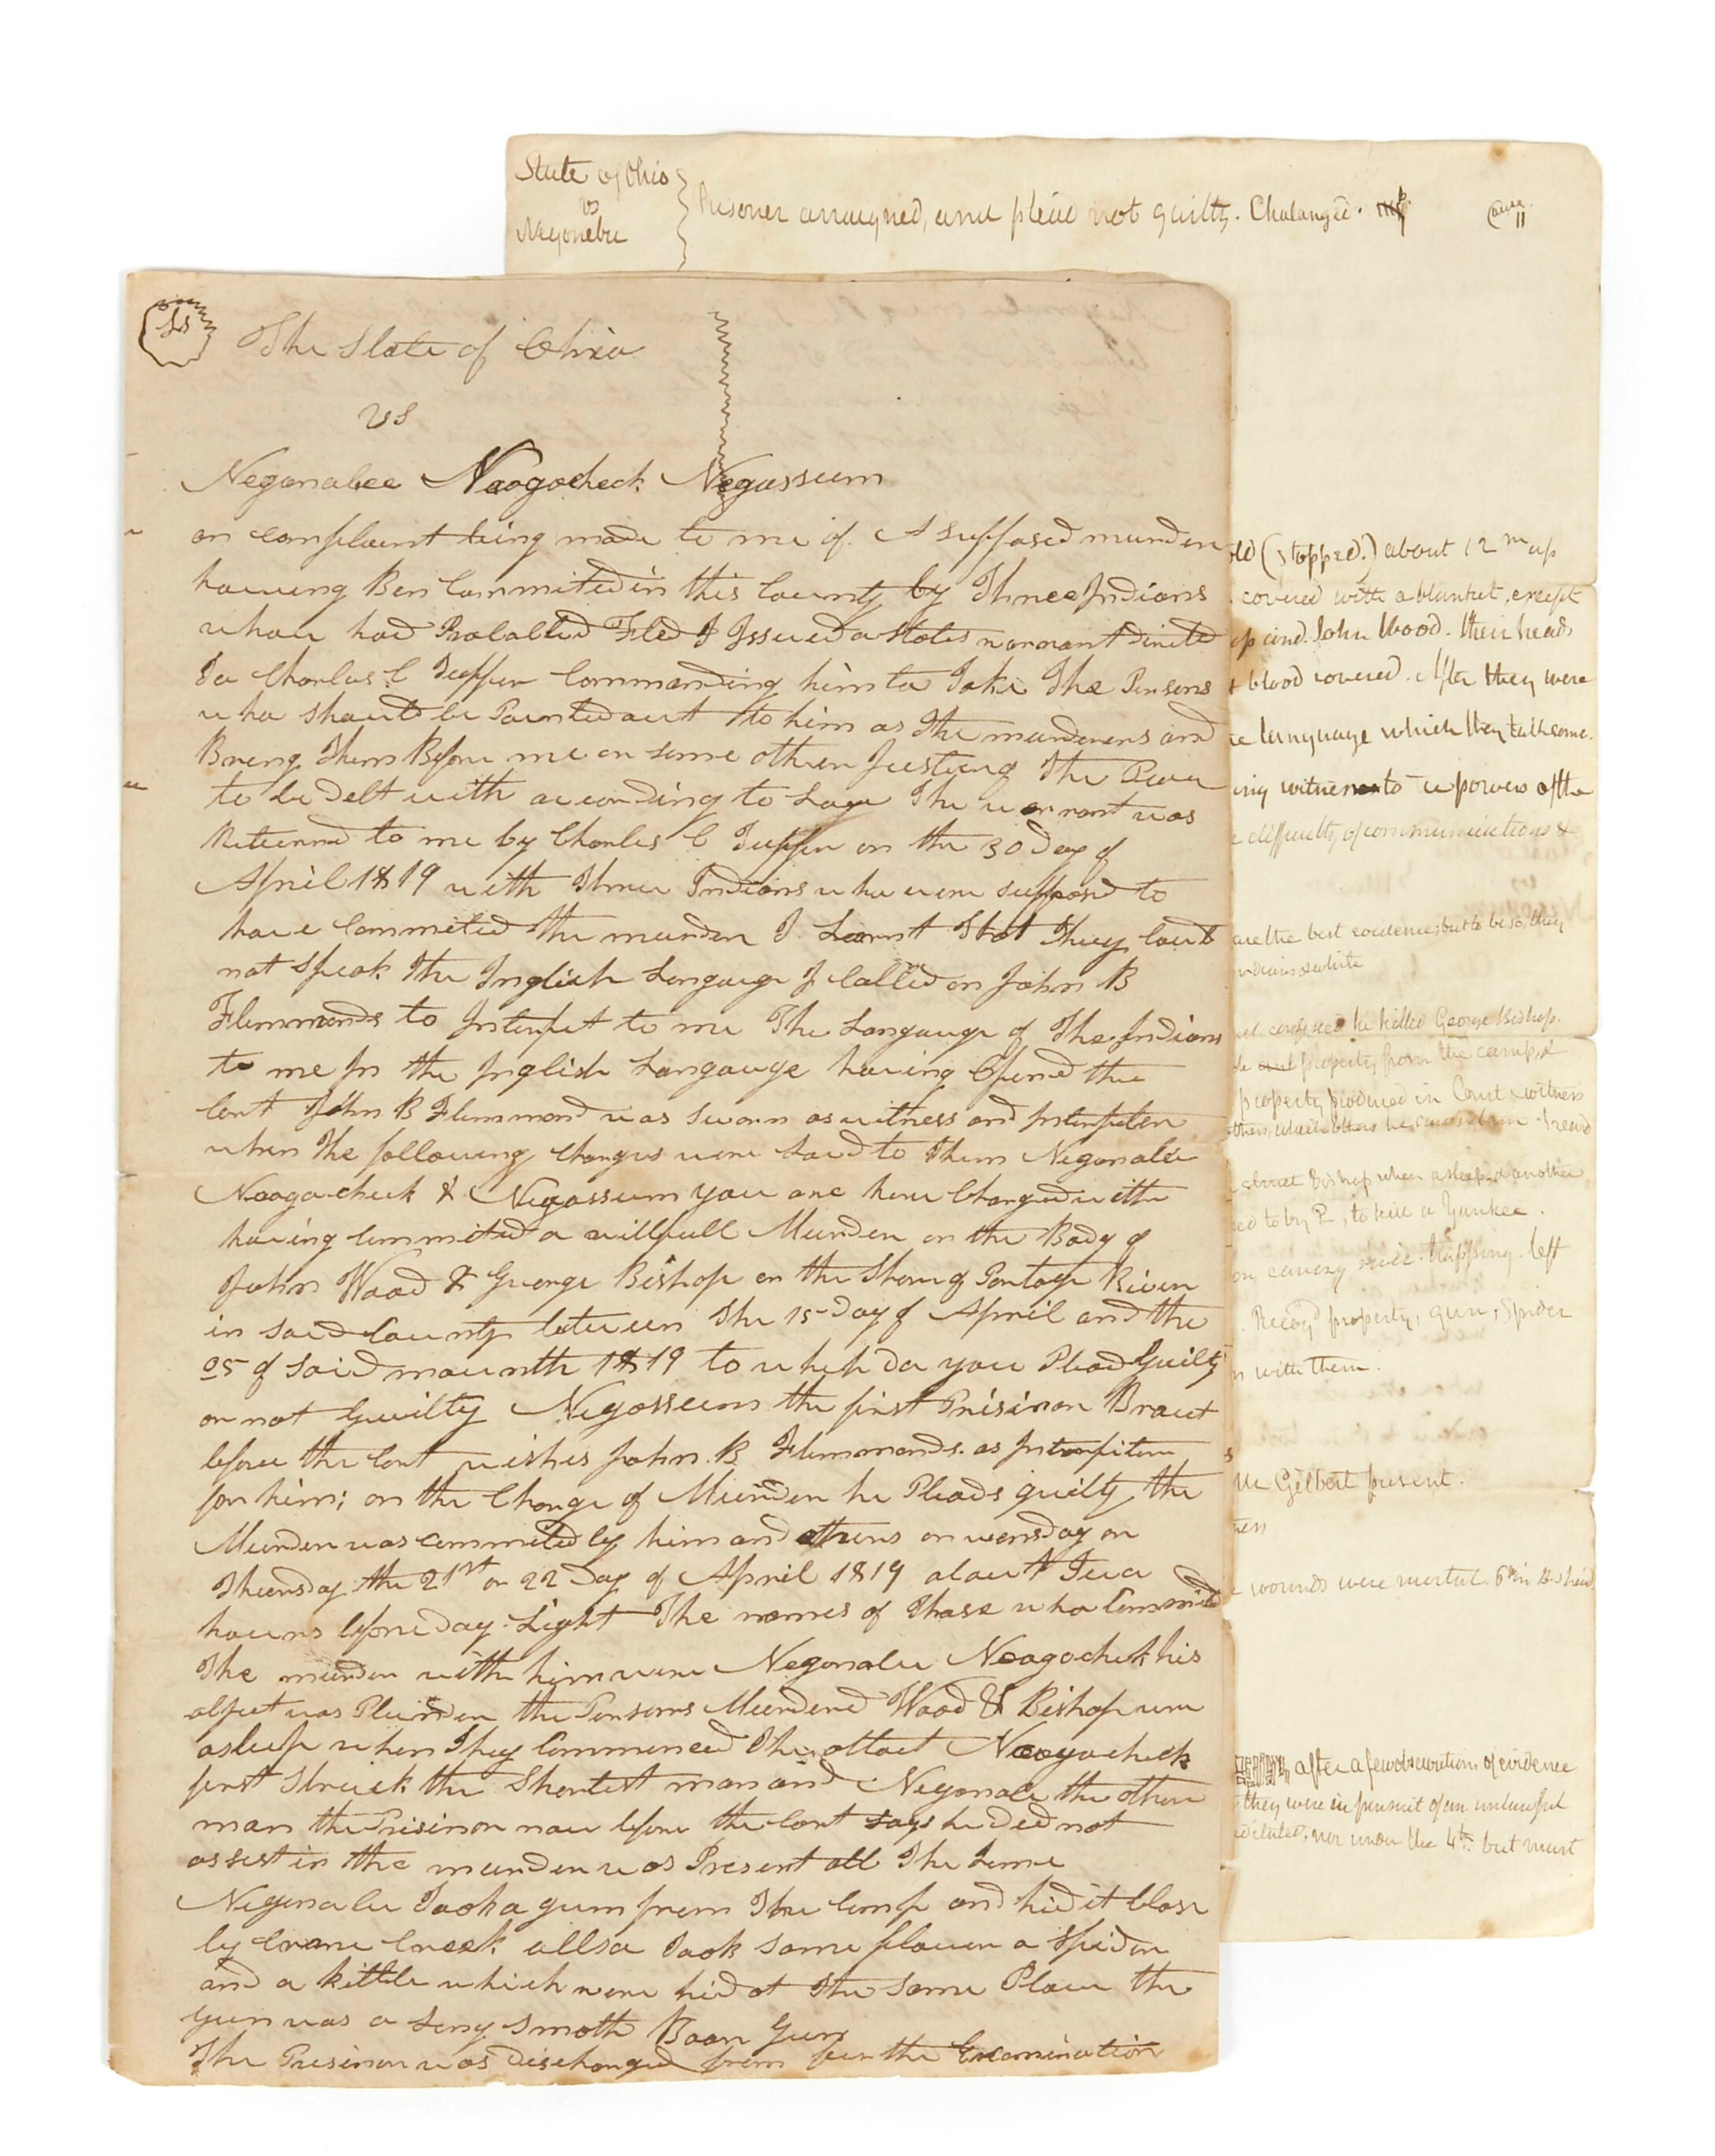 State of Ohio
vs
Negonebu
Prisoner arraigned, and plead not guilty. Chalanged.
LS
The State of Ohio
vs
Negonabee Naogocheck Negossum
on complaint being made to me of A supposed murder
haveing Ben Committed in this County by Three Indians
whou had Probalted Fled I Issued a States warrant dirictd
To Charles C Tupper Commanding him to Take The Persons
who should be Pointed out to him as The murderers and
Breng Them Before me or some other Justice of The Peace
to be delt with according to Law The warrant was
Returnd to me by Charles C Tupper on the 30 Day of
April 1819 with Three Indians who were supposd to
have Commited the murder I Learnt That They Could
not Speak the Inglish Langauge I Called on John B
Flemmonds to Interpit to me The Langauge of The Indians
to me In the Inglish Langauge having Opened the
Cort John B Flemmond was sworn as witness and Interpiter
when The following Charges were Said to Them Negonabe
Naogocheck & Negossum you are here Charged with
having Commited a willfull Murder on the Body of
John Wood & George Bishop on the Shore of Portage River
in said County between The 15 Day of April and the
25 of Said mounth 1819 to which do you Plead Guilty
or not Guilty Negossum the first Prisinor Braut
before the Cort wishes John B Flemmonds as Interpiter
for him; on the Charge of Murder he Pleads guilty the
Murder was commited by him and others on wensday or
Thursday the 21st or 22 Day of April 1819 about Two
hours before day Light The names of Those who Commited
The murder with him were Negonabe Naogocheck his
object was Plunder the Persons Murdered Wood & Bishop were
asleep when They Commenced The attact Naogocheck
first Struck the Shortest man and Negonabe the other
man the Prisinor now before the Cort says he did not
assist in the murder was Present all The time
Negonabe Took a gun from The Camp and hid it Close
by Crane Creek allso Took some flouer a Spider
and a kittle which were hid at The Same Place the
gun was a Long Smoth Boar Gun
The Prisinor was Discharged from further Examination
(stopped.) about 12 m up
covered with a blanket, except
and John Wood. their heads
blood covered. After they were
language which they talk some.
witness to powers of the
difficulty of communications &
are the best evidence, but to be so, they
white
confessed he killed George Bishop.
property from the camp, &
property produced in Court & witness
others, which others he saw
struct Bishop when asleep, & another
to by P, to kill a Yankee.
trapping. left
Recogd property, gun, Spider
with them.
Gilbert present.
wounds were mortal. 6 in Bs head
after a few observations of evidence
they were in pursuit of an unlawful
nor under the 4th but must